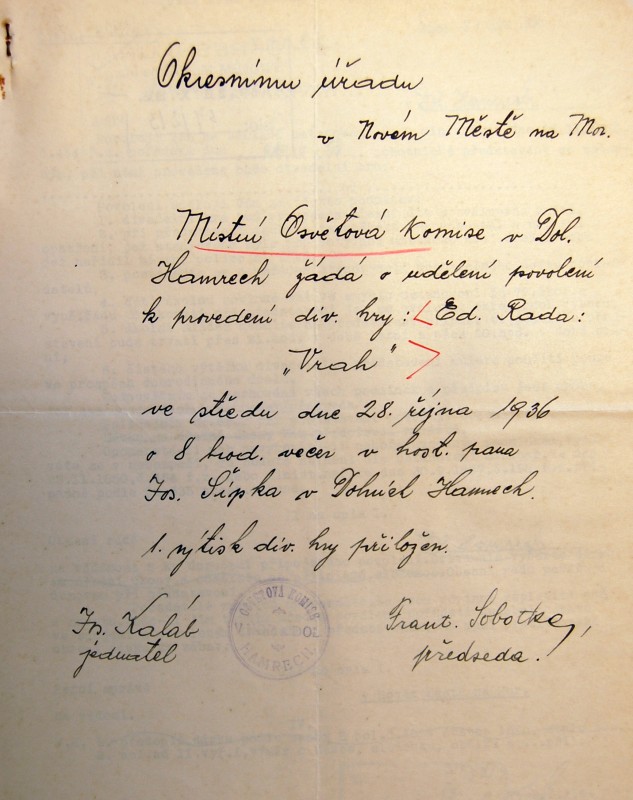 Okresnímu úřadu
v Novém Městě na Mor.
Místní Osvětová Komise v Dol.
Hamrech žádá o udělení povolení
k provedení div. hry: Ed. Rada:
„Vrah"
ve středu dne 28. října 1936
o 8 hod. večer v host. pana
Jos. Šípka v Dolních Hamrech.
1. výtisk div. hry přiložen.
Jos. Kaláb
jednatel
OSVĚTOVÁ KOMISE
V DOL.
HAMRECH
Frant. Sobotka,
předseda.